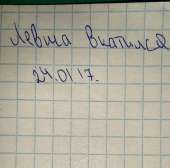 Левша вкатился
24.01.17.